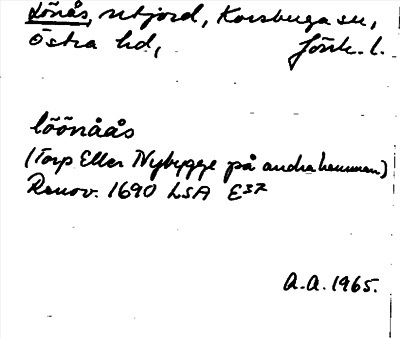 Lönås, utjord, Korsberga sn,
Östra hd, Jönk. l.
löönåås
(Torp Eller Nybygge på andra hemman)
Renov. 1690 LSA E 37
A.A. 1965.